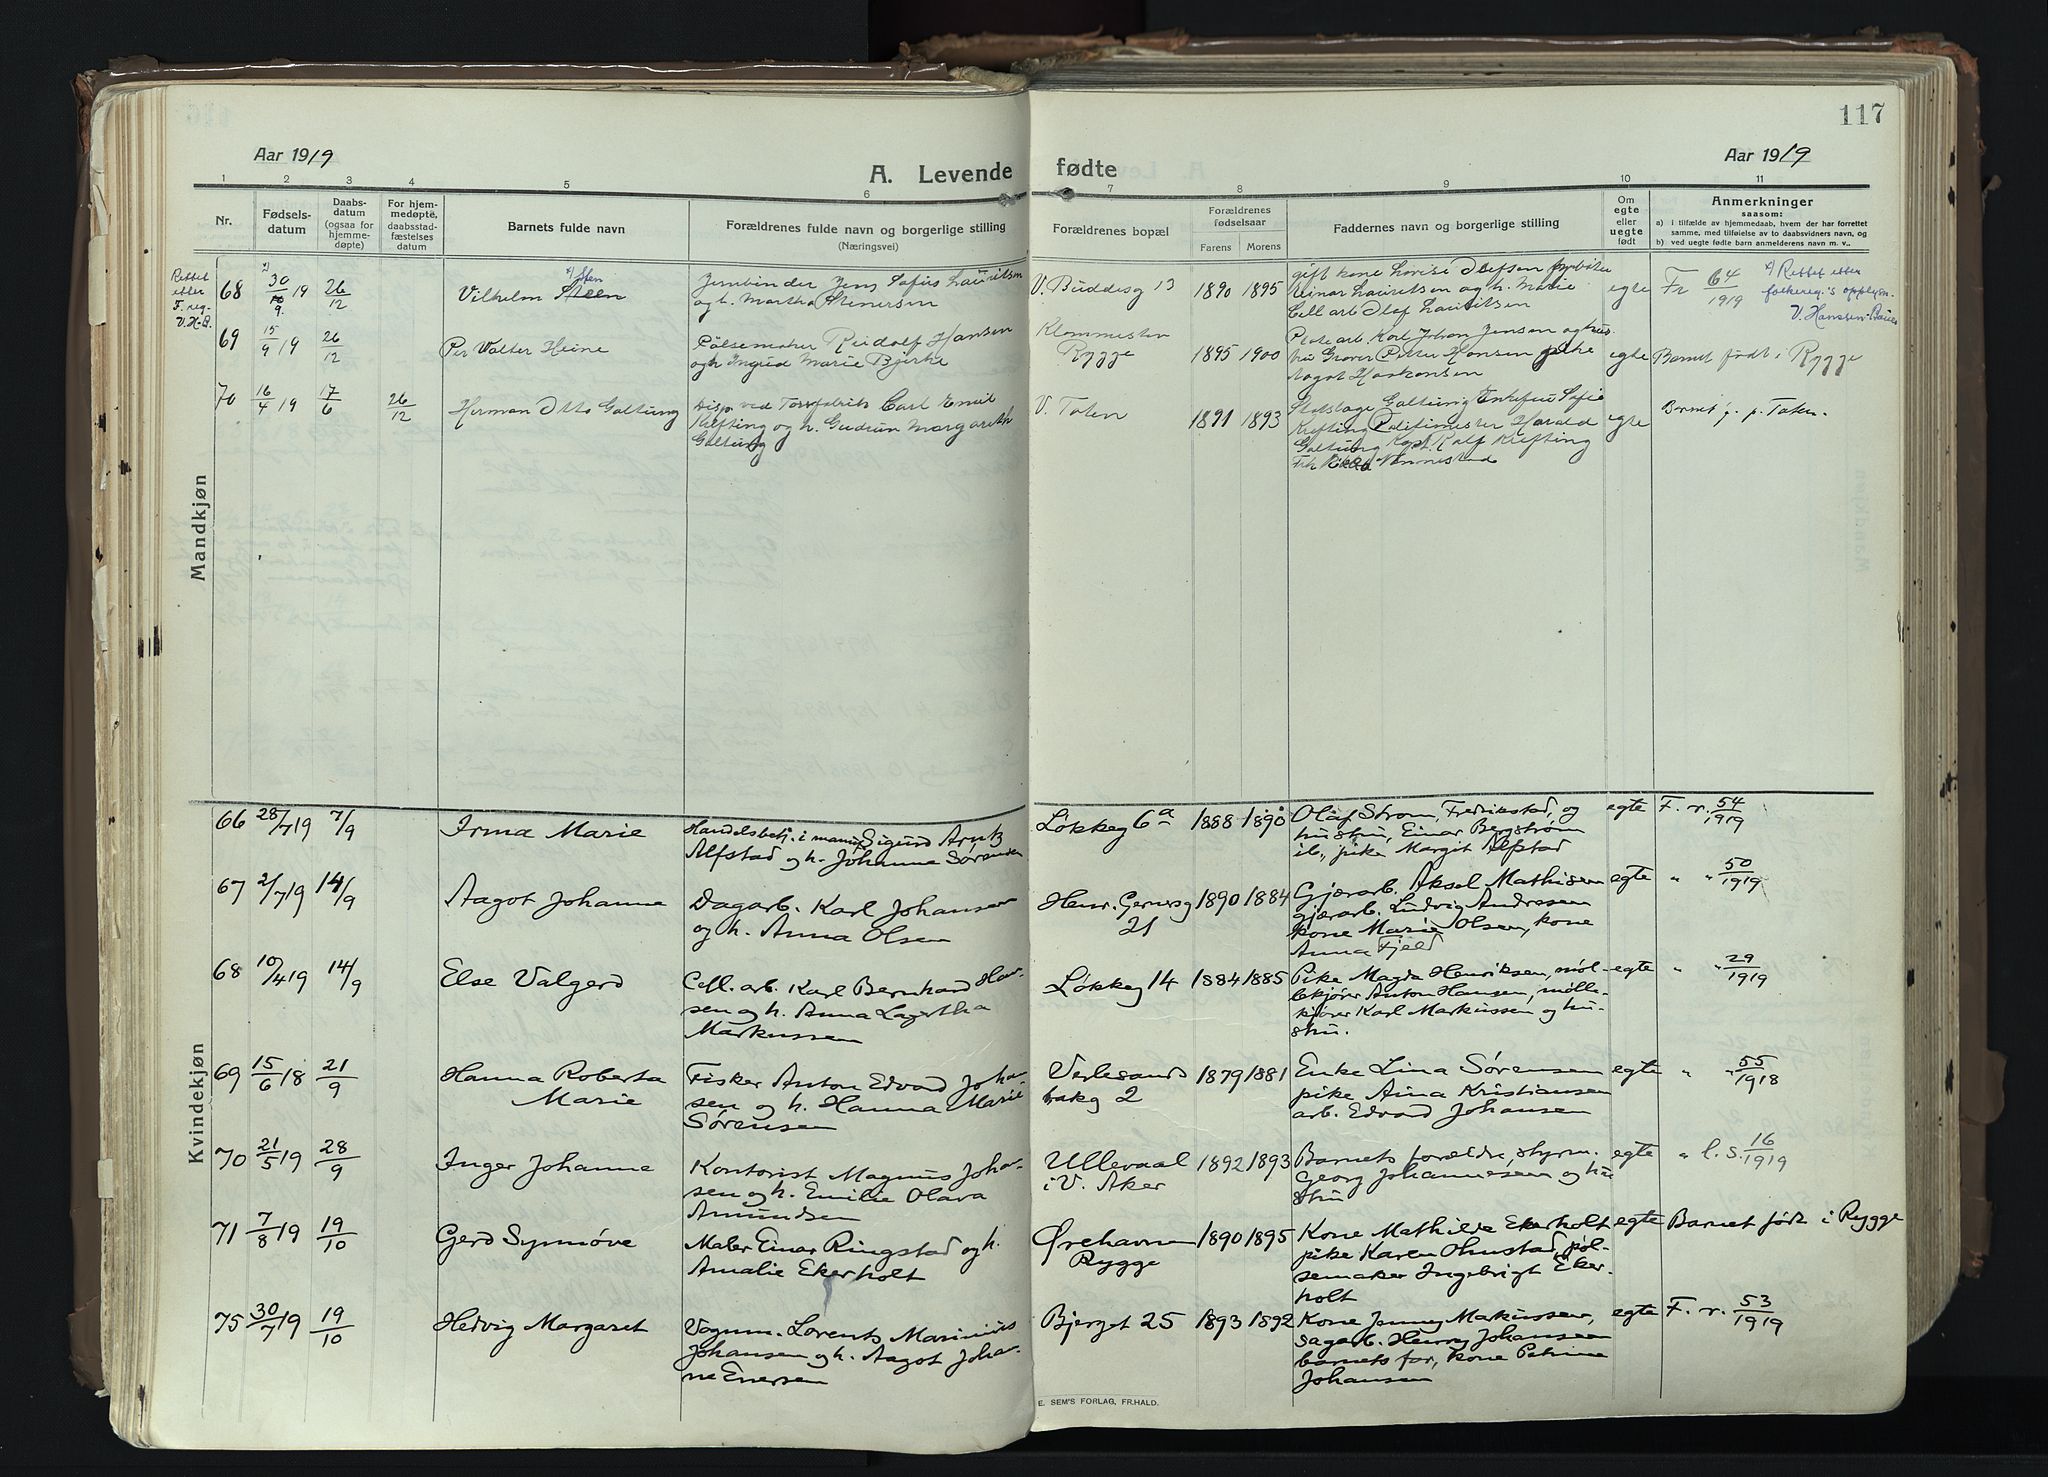 117
Aar 1919
A. Levende fødte
Aar 1919
1 2 3 4 5 6 7 8 9 10 11
Nr.
Fødsels-
datum
Daabs-
datum
(ogsaa for
hjemme-
døpte)
For hjem-
medøpte,
daabsstad-
fæstelses
datum
Barnets fulde navn
Forældrenes fulde navn og borgerlige stilling
(Næringsvei)
Forældrenes bopæl
Forældrenes
fødselsaar
Farens Morens
Faddernes navn og borgerlige stilling
Om
egte
eller
uegte
født
Anmerkninger
saasom:
a) i tilfælde av hjemmedaab, hvem der har forrettet
samme, med tilføielse av to daabsvidners navn, og
b) ved uegte fødte barn anmelderens navn m. v.,
Mandkjøn
Rettet
etter
F. reg.
V. H-B.
68 30/9 19 26/12
x) Sten
Vilhelm Steen
Jernbinder Jens Sofus Lauritsen
og h. Martha Stenersen
V. Buddesg 13
1890 1895
gift kone Lovise Olefsen fyrbøter
Einar Lauritsen og h. Marie
Cell arb Olaf Lauritsen
egte
Fr 64/1919
x) Rettet etter
folkereg.'s opplysn.
V. Hanssen-Bauer
69 15/9 19 26/12
Per Walter Heine
Pølsemaker Reidolf Hansen
og h Ingrid Marie Bjerke
Rygge
1895 1900
Karl Johan Jensen og hus
tru Petter Hansen pike
Aagot Haakonsen
egte
Barnet født i Rygge
70 16/4 19 17/6 26/12
Herman Otto Galtung
Disp. ved Carl Emil
Krefting og h. Gudrun Margarethe
Galtung
V. Toten
1891 1893
Galtung Enkefru Sofie
Krefting Politimester Harald
Galtung Kapt. Rolf Krefting
Frk Nannestad
egte
Barnet f. p. Toten.
Kvindekjøn
66 28/7 19 7/9
Irma Marie
Handelsbetj. i manuf. Sigurd Arntz
Alfstad og h. Johanne Sørensen
Løkkeg 6a
1888 1890
Olaf Strøm, Fredrikstad, og
hustru, Einar Bergstrøm
ib., pike Margit Alfstad
egte
F. r. 54/1919
67 2/7 19 14/9
Aagot Johanne
Dagarb. Karl Johansen
og h. Anna Olsen
Henr. Gernersg
21
1890 1884
Gjærarb. Aksel Mathisen
gjærarb. Ludvig Andresen
kone Marie Olsen, kone
Anna Fjeld
egte
" " 50/1919
68 10/4 19 14/9
Else Valgerd
Cell. arb. Karl Bernhard Han-
sen og h. Anna Lagertha
Markussen
Løkkeg 14
1884 1885
Pike Magda Henriksen, møl-
lekjører Anton Hansen, mølle-
kjører Karl Markussen og hu-
stru.
egte
" " 29/1919
69 15/6 18 21/9
Hanna Roberta
Marie
Fisker Anton Edvard Johan-
sen og h. Hanna Marie
Sørensen
Verlesands
bakg 2
1879 1881
Enke Lina Sørensen
pike Aina Kristiansen
arb. Edvard Johansen
egte
" " 55/1918
70 21/5 19 28/9
Inger Johanne
Kontorist Magnus Johan-
sen og h. Emilie Olava
Amundsen
Ullevaal
i V. Aker
1892 1893
Barnets forældre, styrm.
Georg Johannesen og hu
stru
egte
" l. s. 16/1919
71 7/8 19 19/10
Gerd Synnøve
Maler Einar Ringstad og h.
Amalie Ekerholt
Ørehavna
Rygge
1890 1895
Kone Mathilde Ekerholt
pike Karen Olmstad, pøl-
semaker Ingebrigt Eker-
holt
egte
Barnet født i Rygge
75 30/7 19 19/10
Hedvig Margaret
Vognm. Lorents Marinius
Johansen og h. Aagot Johan-
ne Enersen
Bjerget 25
1893 1892
Kone Jenny Markussen,
sagarb. Henry Johansen
barnets far, kone Petrine
Johansen
egte
F. r. 53/1919
E. SEM'S FORLAG, FR.HALD.